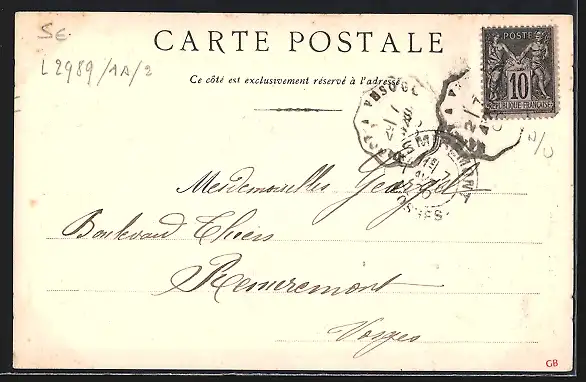 SE
L2989/1A/2
CARTE POSTALE
Ce côté est exclusivement réservé à l'adresse
POSTE
10
REPUBLIQUE FRANÇAISE
A/U
Mesdemoiselles Georgel
Boulevard Thiers
Remiremont
Vosges
GB